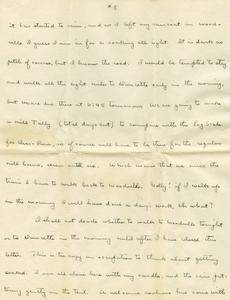 #3
it has started to rain, and as I left my raincoat in Wood-
ville I guess I am in for a soaking all right. It is dark as
pitch of course, but I know the road. I would be tempted to stay
and walk all the eight miles to Dunnette early in the morning,
but we are due there at 6:45 tomorrow. We are going to make
a mill Tally (total days cut) to compare with the log Scale
for their Run, so of course will have to be there for the regular
mill hours, seven until six. Which means that we miss the
train & have to walk back to Woodville. Golly! if I walk up
in the morning I will have done a day's work, eh what?
I shall not decide whether to walk to Woodville tonight
or to Dunnette in the morning until after I have closed this
letter. This is too cozy an occupation to think about getting
soaked. I am all alone here with my candle, and the rain put-
tering gently on the tent. A welcome cooling has come with